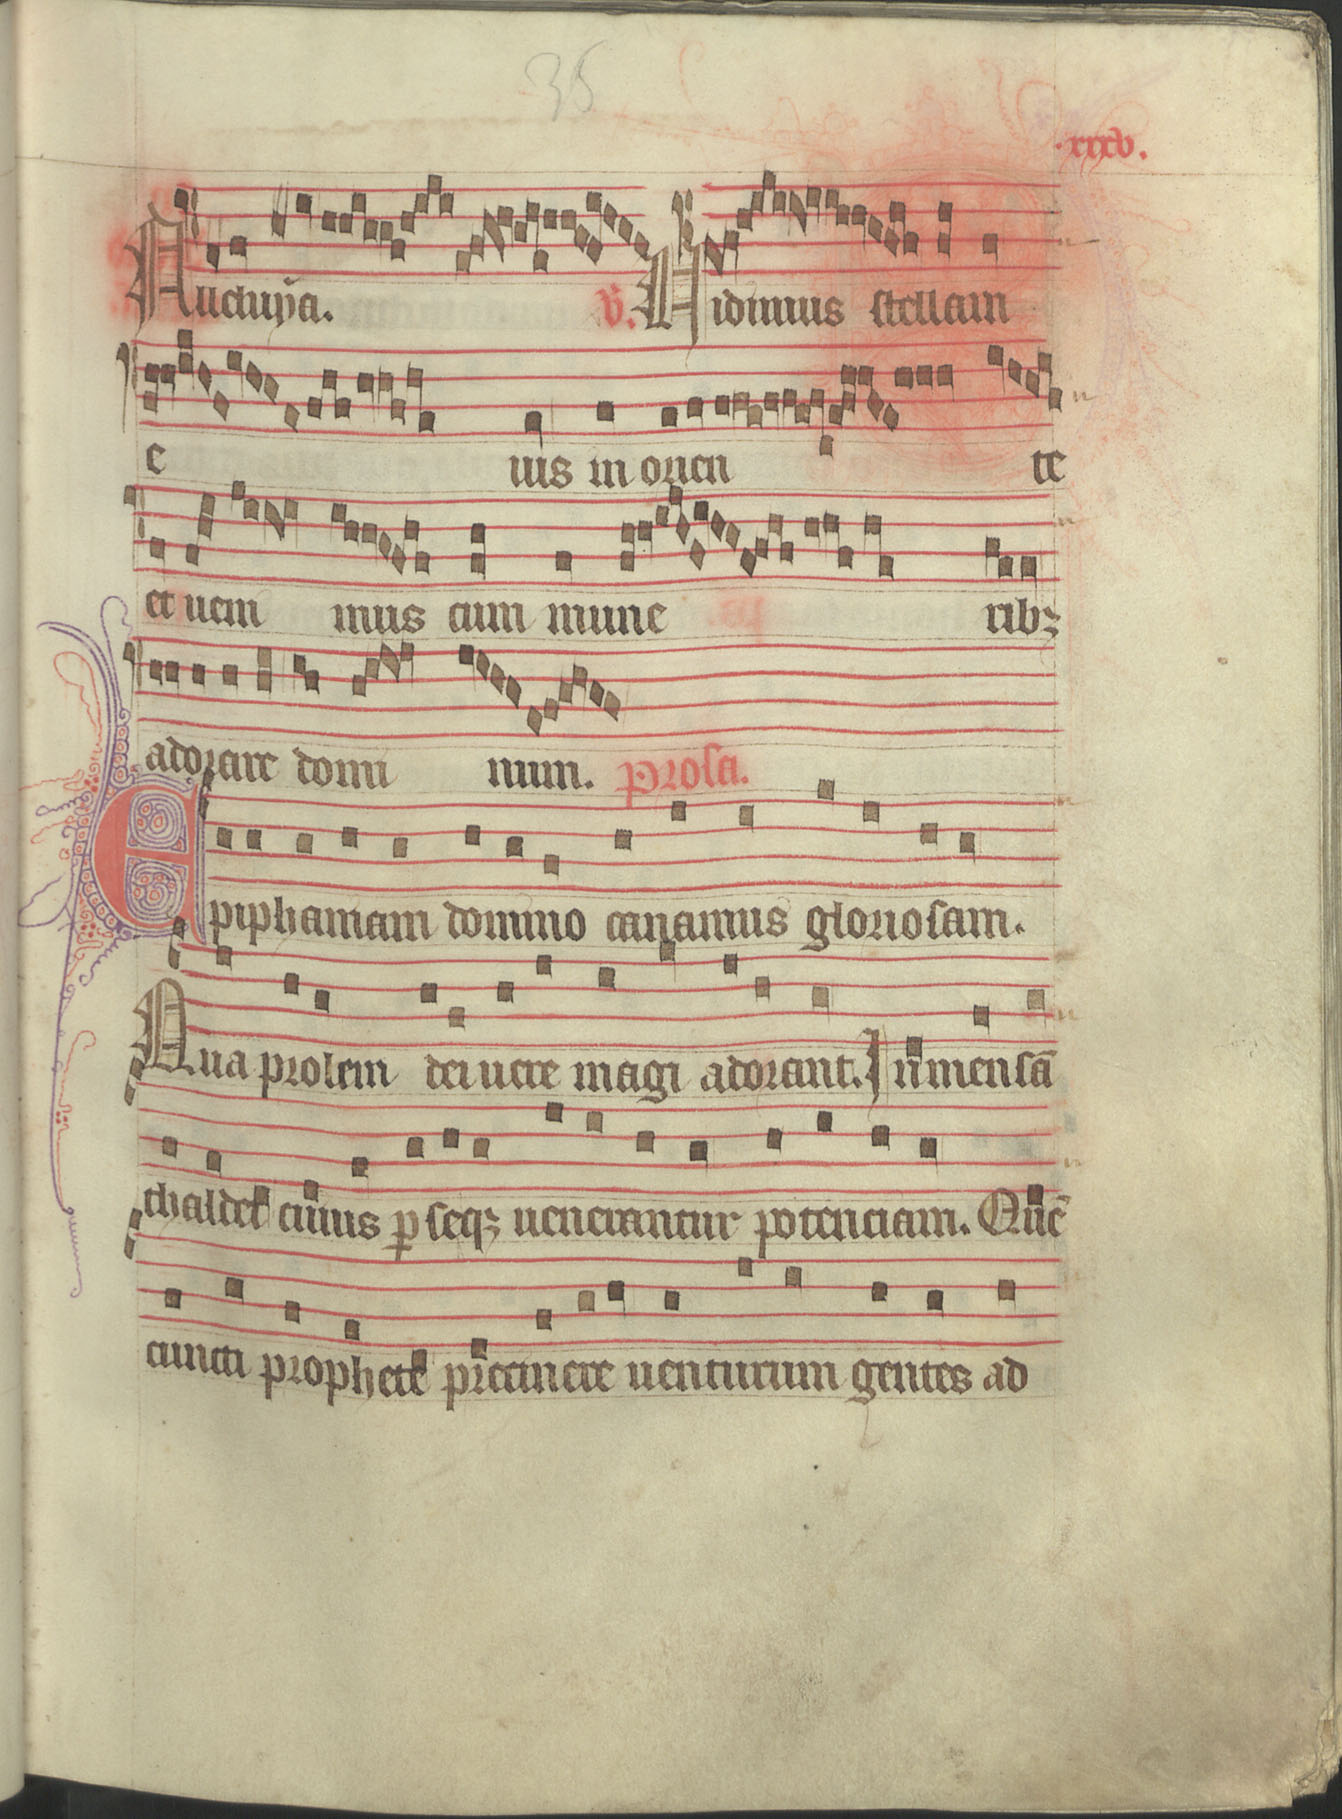 35
.xxxv.
Alleluya. V. Vidimus stellam
e ius in orien te
et ueni mus cum mune ribꝫ
adorare domi num. Prosa.
Epiphaniam domino canamus gloriosam.
Qua prolem dei uere magi adorant. Inmensā
chaldei cuius ꝑseqꝫ uenerantur potenciam. Quē
cuncti prophete precinere uenturum gentes ad